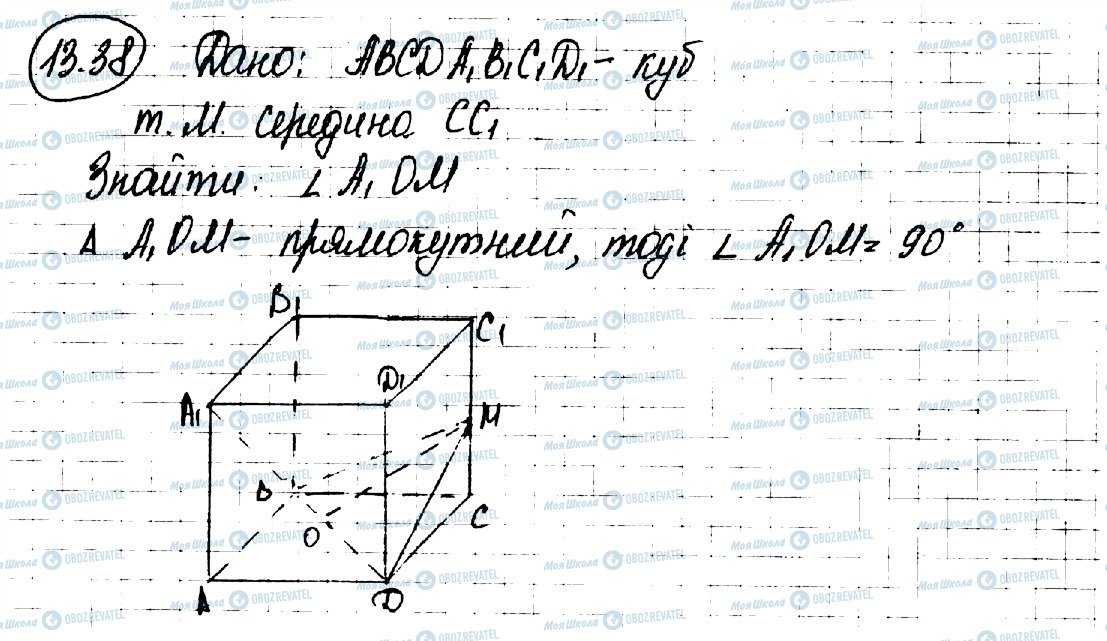 13.38 Дано: ABCDA₁B₁C₁D₁ - куб
т. М. середина CC₁
Знайти: ∠ A₁OM
Δ A₁OM - прямокутний, тоді ∠ A₁OM = 90°
B₁
C₁
D₁
A₁
M
B
C
O
A
D
МояШкола OBOZREVATEL